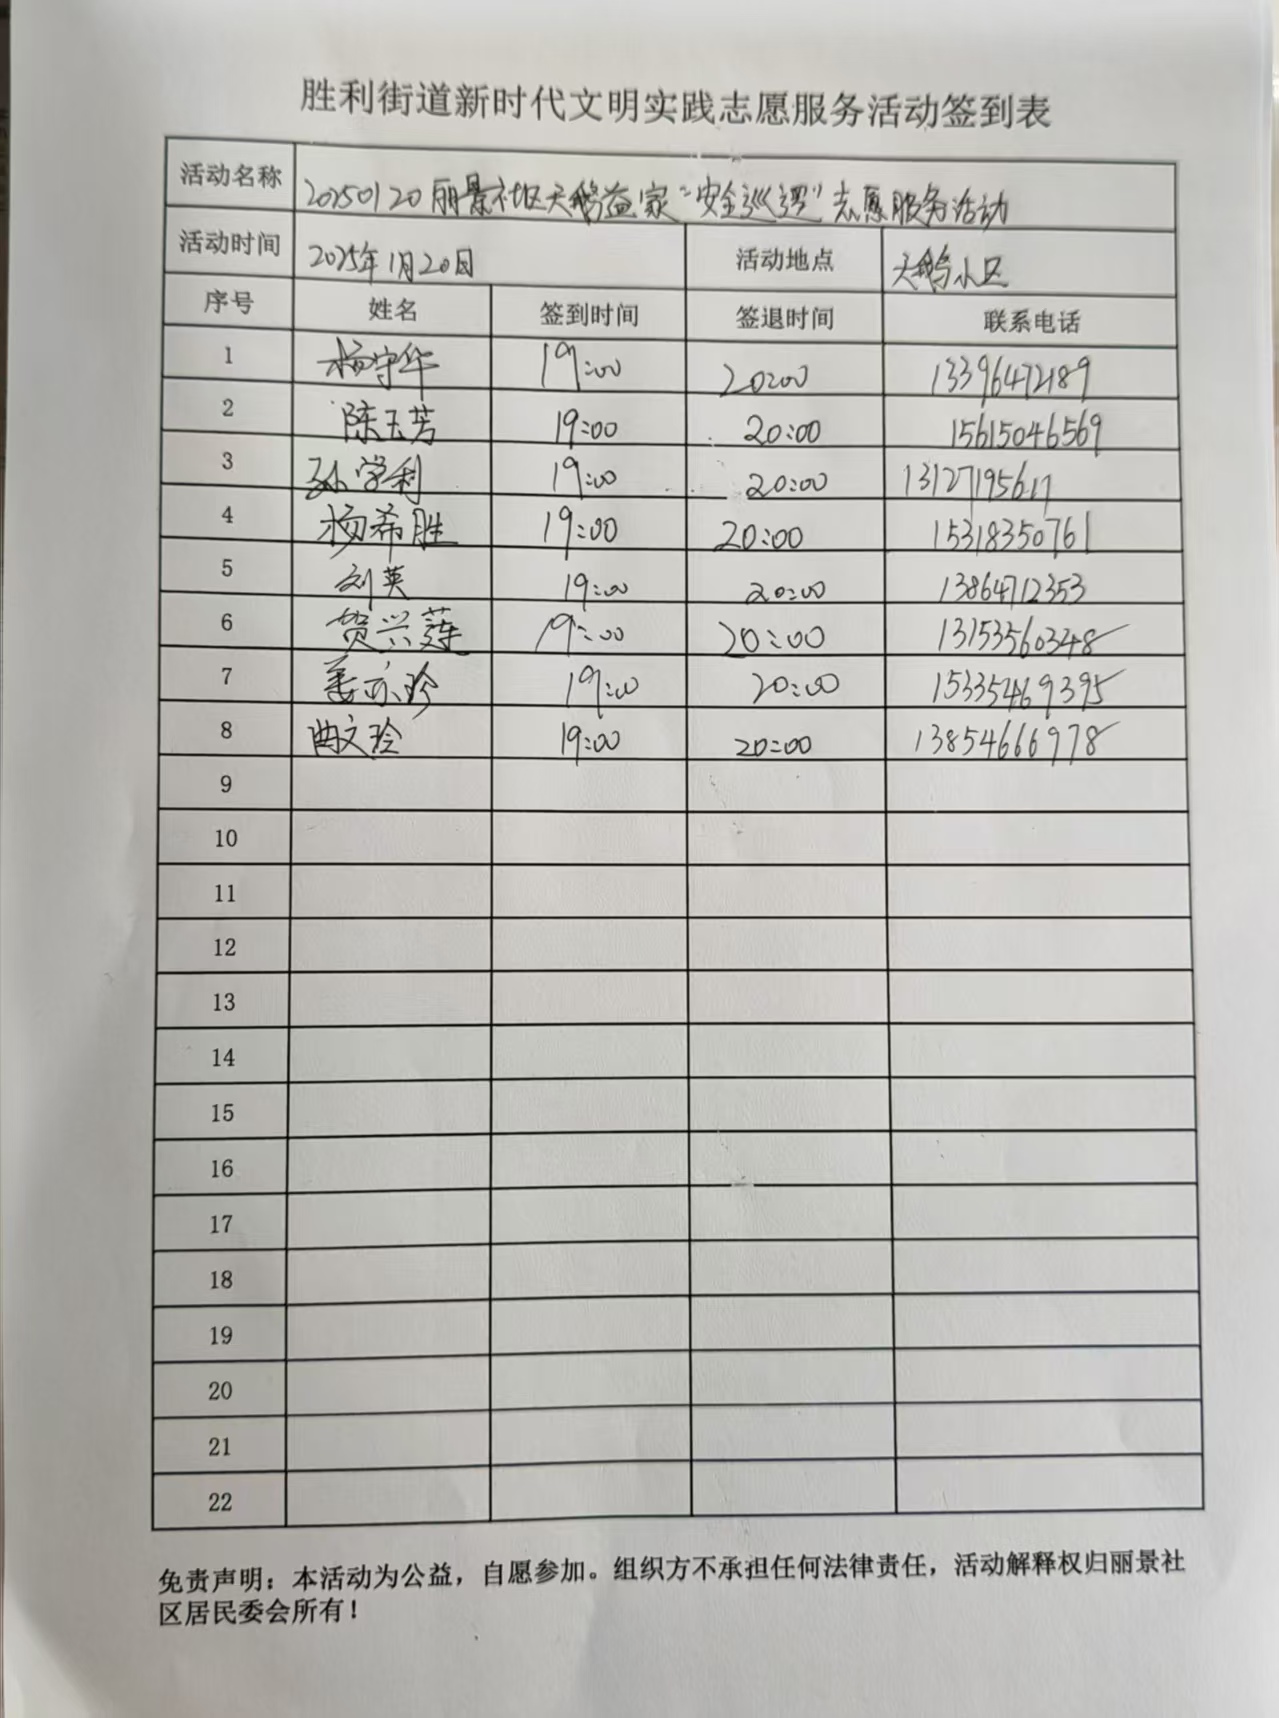 胜利街道新时代文明实践志愿服务活动签到表
活动名称 20250120丽景社区天鹅益家“安全巡逻”志愿服务活动
活动时间 2025年1月20日 活动地点 天鹅小区
序号 姓名 签到时间 签退时间 联系电话
1 杨守华 19:00 20:00 13396472189
2 陈玉芳 19:00 20:00 15615046569
3 孙学利 19:00 20:00 13127195617
4 杨希胜 19:00 20:00 15318350761
5 刘英 19:00 20:00 13864712353
6 贺兴莲 19:00 20:00 13153560348
7 姜京珍 19:00 20:00 15335469395
8 曲文玲 19:00 20:00 13854666978
9
10
11
12
13
14
15
16
17
18
19
20
21
22
免责声明：本活动为公益，自愿参加。组织方不承担任何法律责任，活动解释权归丽景社
区居民委会所有！